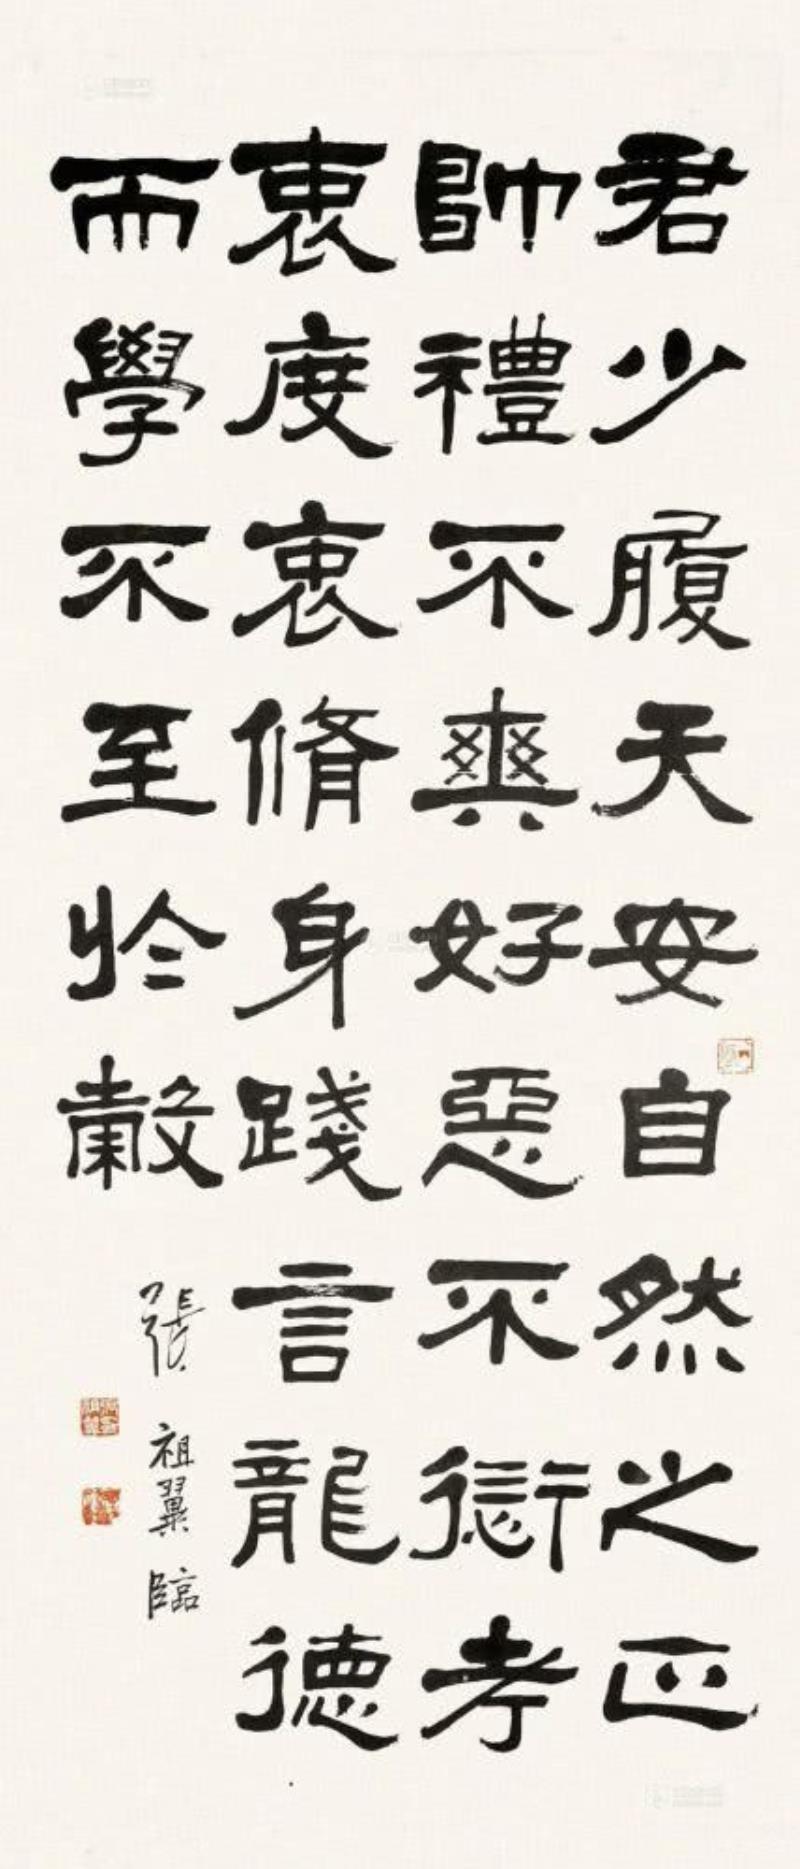 君少履天安自然之正
帥禮不爽好惡不愆考
衷度衷脩身踐言龍德
而學不至於穀
張祖翼臨